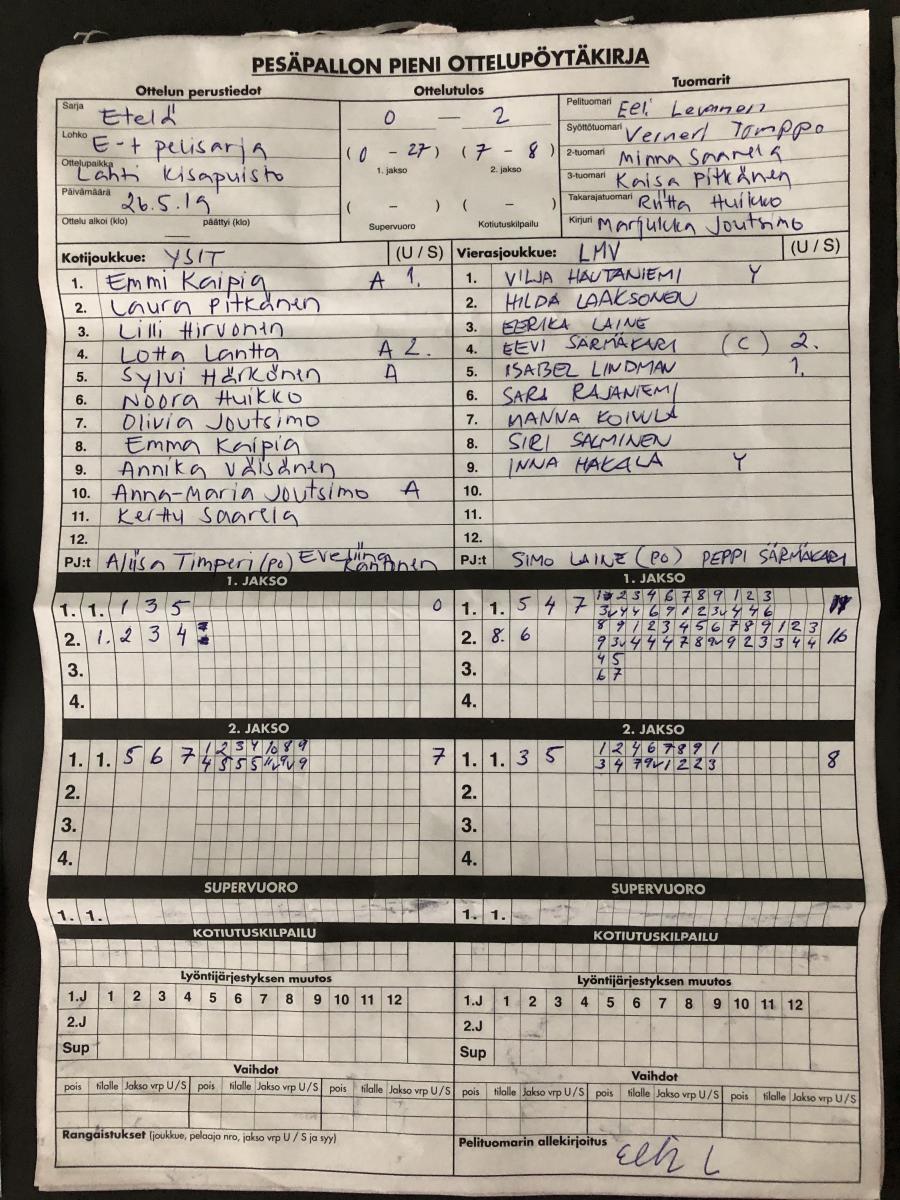 PESÄPALLON PIENI OTTELUPÖYTÄKIRJA
Ottelun perustiedot
Sarja Etelä
Lohko E-t pelisarja
Ottelupaikka Lahti Kisapuisto
Päivämäärä 26.5.19
Ottelu alkoi (klo) päättyi (klo)
Ottelutulos
0 — 2
(0 - 27) (7 - 8)
1. jakso 2. jakso
( - ) ( - )
Supervuoro Kotiutuskilpailu
Tuomarit
Pelituomari Eeli Levanen
Syöttötuomari Verneri Tomppo
2-tuomari Minna Saarela
3-tuomari Kaisa Pitkänen
Takarajatuomari Riitta Huikko
Kirjuri Marjukka Joutsimo
Kotijoukkue: YSIT (U / S)
1. Emmi Kaipia A 1.
2. Laura Pitkänen
3. Lilli Hirvonen
4. Lotta Lantta A 2.
5. Sylvi Härkönen A
6. Noora Huikko
7. Olivia Joutsimo
8. Emma Kaipia
9. Annika Väisänen
10. Anna-Maria Joutsimo A
11. Kerttu Saarela
12.
PJ:t Aliisa Timperi (po) Eveliina Kantinen
Vierasjoukkue: LMV (U / S)
1. VILJA HAUTANIEMI Y
2. HILDA LAAKSONEN
3. EERIKA LAINE
4. EEVI SÄRMÄKARI (C) 2.
5. ISABEL LINDMAN 1.
6. SARA RAJANIEMI
7. NANNA KOIVULA
8. SIRI SALMINEN
9. INNA HAKALA Y
10.
11.
12.
PJ:t SIMO LAINE (PO) PEPPI SÄRMÄKARI
1. JAKSO
1. 1. 1 3 5 0
2. 1. 2 3 4
3.
4.
1. JAKSO
1. 1. 5 4 7 1 2 3 4 6 7 8 9 1 2 3
3v 4 4 6 9 1 2 3v 4 4 6
2. 8. 6 8 9 1 2 3 4 5 6 7 8 9 1 2 3 16
9 3v 4 4 4 7 8 9v 9 2 3 3 4 4
3. 4 5
6 7
4.
2. JAKSO
1. 1. 5 6 7 1 2 3 4 10 8 9 7
4 5 5 5 11v 9v 9
2.
3.
4.
2. JAKSO
1. 1. 3 5 1 2 4 6 7 8 9 1 8
3 4 7 9v 1 2 2 3
2.
3.
4.
SUPERVUORO
1. 1.
SUPERVUORO
1. 1.
KOTIUTUSKILPAILU
KOTIUTUSKILPAILU
Lyöntijärjestyksen muutos
1.J 1 2 3 4 5 6 7 8 9 10 11 12
2.J
Sup
Lyöntijärjestyksen muutos
1.J 1 2 3 4 5 6 7 8 9 10 11 12
2.J
Sup
Vaihdot
pois tilalle Jakso vrp U / S pois tilalle Jakso vrp U / S pois tilalle Jakso vrp U / S
Vaihdot
pois tilalle Jakso vrp U / S pois tilalle Jakso vrp U / S pois tilalle Jakso vrp U / S
Rangaistukset (joukkue, pelaaja nro, jakso vrp U / S ja syy)
Pelituomarin allekirjoitus